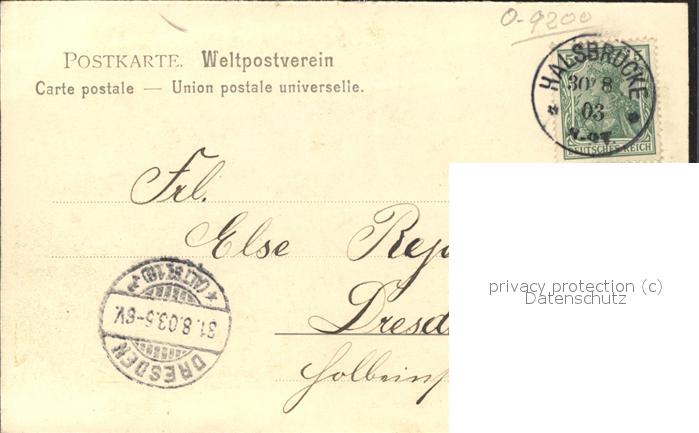 O-9200
POSTKARTE. Weltpostverein
Carte postale — Union postale universelle.
HALSBRÜCKE
30 8
03
DEUTSCHES REICH
Frl.
Else
Dresd
Holbeins
DRESDEN
31.8.03.5-6V.
(ALTST.)16)
privacy protection (c)
Datenschutz